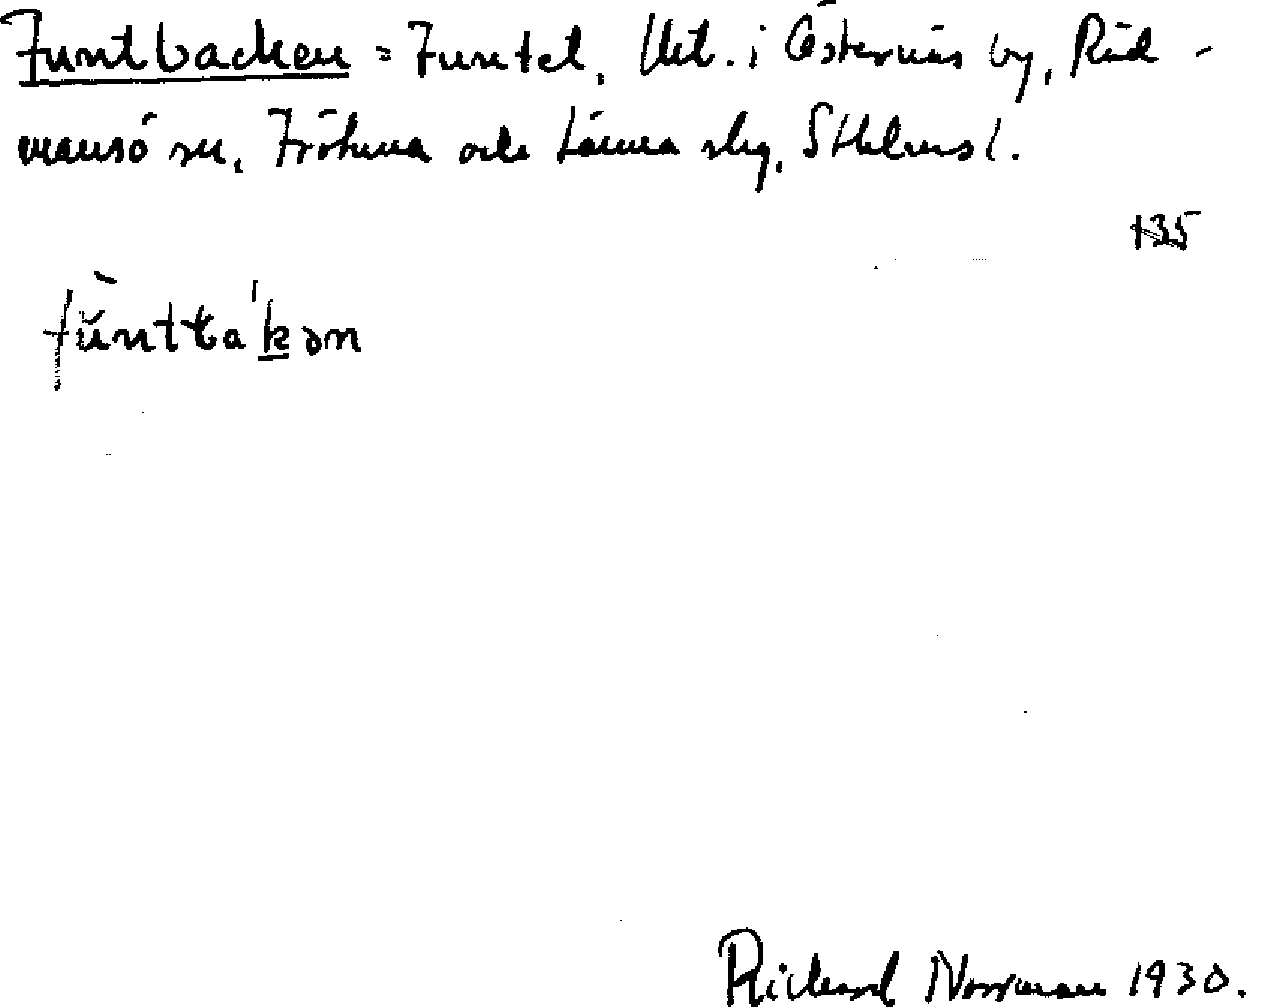 Funtbacken = Funtel, Utt. i Östernäs by, Råd-
mansö sn, Frötuna och Länna skg, Sthlms l.
135
fùntba'kən
Rickard Norrman 1930.